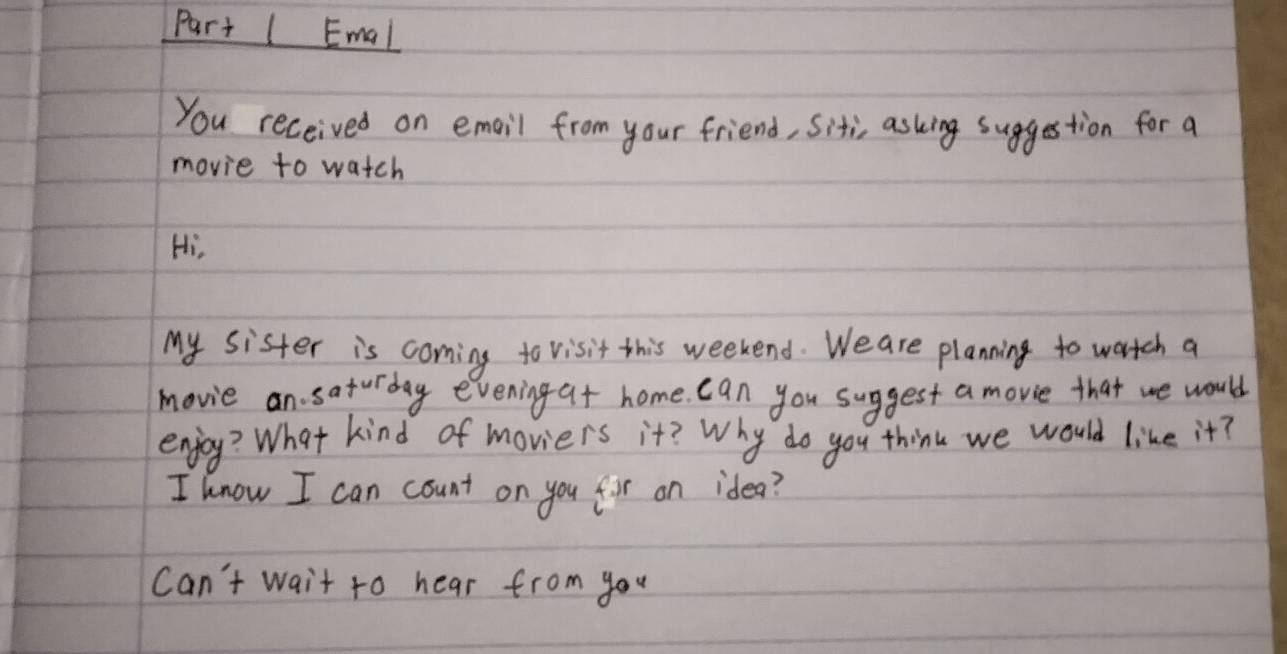 Part 1 Emal
You received on email from your friend, Siti, asking suggestion for a
movie to watch
Hi,
My sister is coming to visit this weekend. We are planning to watch a
movie an.saturday evening at home. Can you suggest a movie that we would
enjoy? What kind of moviers it? Why do you think we would like it?
I know I can count on you for an idea?
Can't wait to hear from you